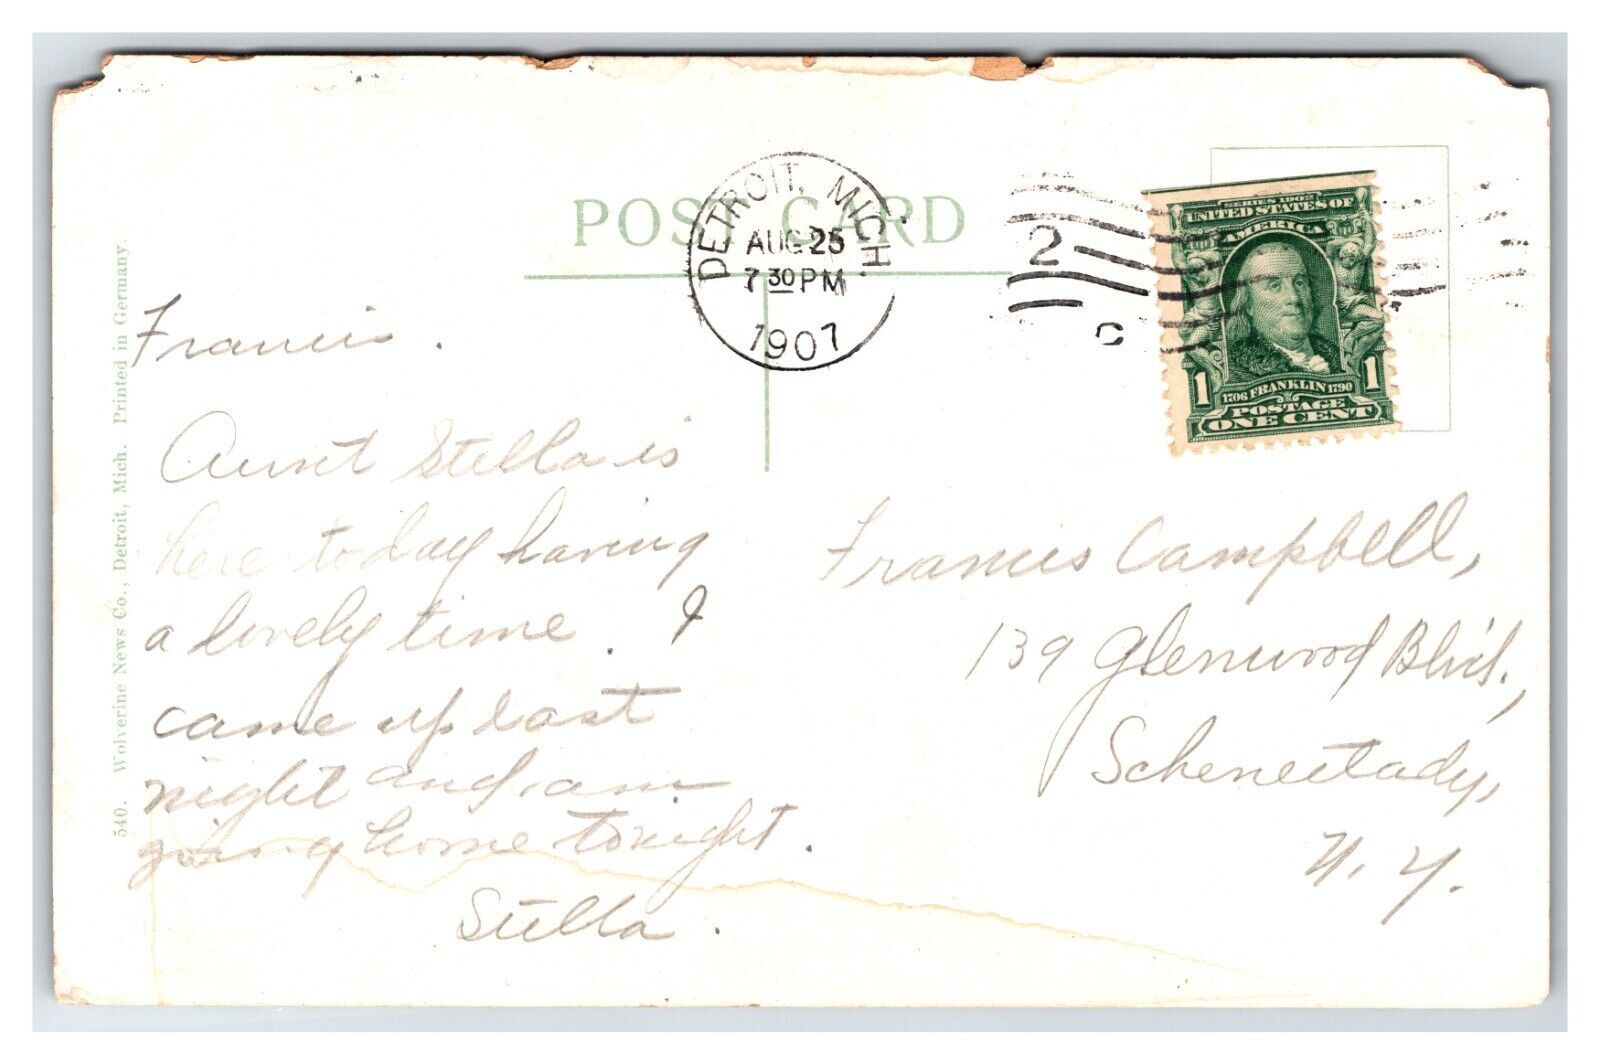 POST CARD
DETROIT, MICH.
AUG 25
7 30 PM
1907
2
C
SERIES 1902
UNITED STATES OF
AMERICA
1706 FRANKLIN 1790
1 1
POSTAGE
ONE CENT
540. Wolverine News Co., Detroit, Mich. Printed in Germany.
Francis.
Aunt Stella is
here today having
a lovely time. I
came up last
night and am
going home tonight.
Stella.
Francis Campbell,
139 Glenwood Blvd.,
Schenectady,
N. Y.